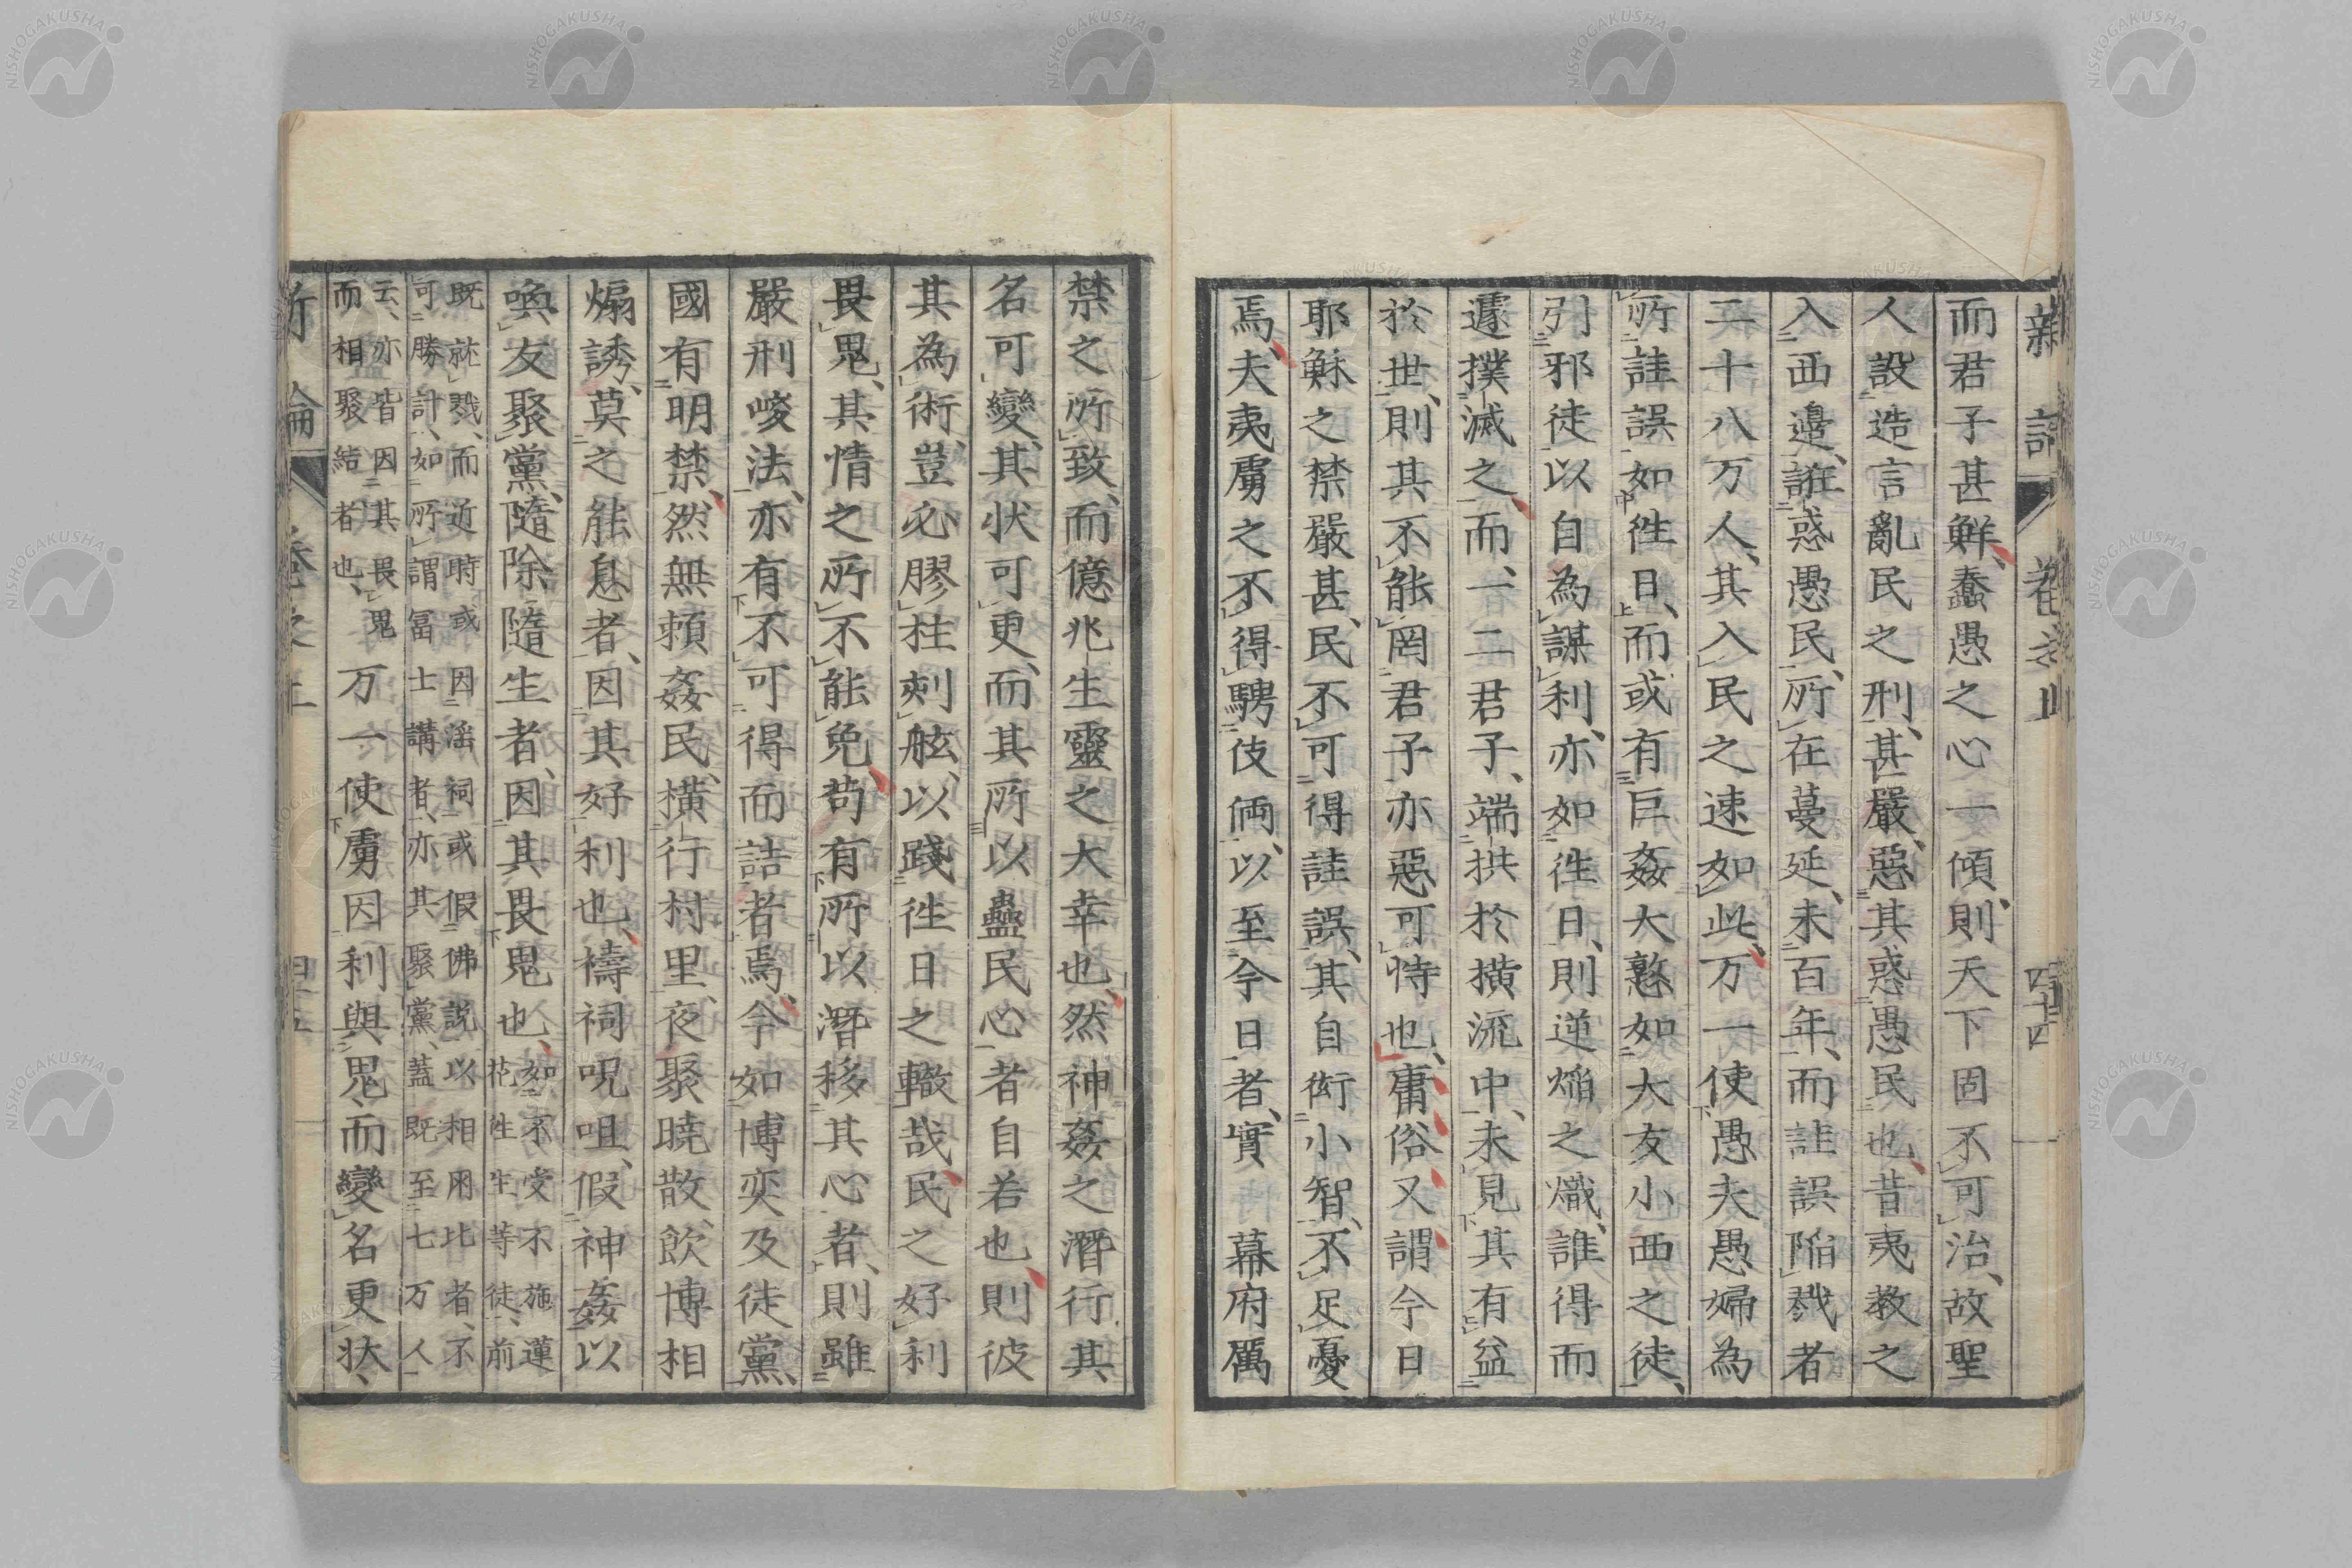 新論 卷之上 四十四
而君子甚鮮、蠢愚之心一傾、則天下固不可治、故聖
人設造言亂民之刑、甚嚴、惡其惑愚民也、昔夷教之
入西邊、誑惑愚民、所在蔓延、未百年、而詿誤陷戮者
二十八万人、其入民之速如此、万一使愚夫愚婦為
所詿誤如徃日、而或有巨姦大憝如大友小西之徒、
引邪徒以自為謀利、亦如徃日、則逆焔之熾、誰得而
遽撲滅之、而一二君子、端拱於横流中、未見其有益
於世、則其不能罔君子亦惡可恃也、庸俗又謂今日
耶穌之禁嚴甚、民不可得詿誤、其自衒小智、不足憂
焉、夫夷虜之不得騁伎倆、以至今日者、實 幕府厲
禁之所致、而億兆生靈之大幸也、然神姦之潛行其
名可變、其状可更、而其所以蠱民心者自若也、則彼
其為術、豈必膠柱刻舷、以踐徃日之轍哉、民之好利
畏鬼、其情之所不能免、苟有所以潛移其心者、則雖
嚴刑峻法、亦有不可得而詰者焉、今如博奕及徒黨、
國有明禁、然無頼姦民、横行村里、夜聚曉散、飲博相
煽誘、莫之能息者、因其好利也、禱祠呪咀、假神姦以
喚友聚黨、隨除隨生者、因其畏鬼也、如不受不施蓮
花徃生等徒、前
既就戮、而近時或因淫祠或假佛説以相用比者、不
可勝計、如所謂冨士講者、亦其聚黨、蓋既至七万人
云、亦皆因其畏鬼
而相聚結者也、 万一使虜因利與鬼、而變名更状、
新論 卷之上 四十五
NISHOGAKUSHA
NISHOGAKUSHA
NISHOGAKUSHA
NISHOGAKUSHA
NISHOGAKUSHA
NISHOGAKUSHA
NISHOGAKUSHA
NISHOGAKUSHA
NISHOGAKUSHA